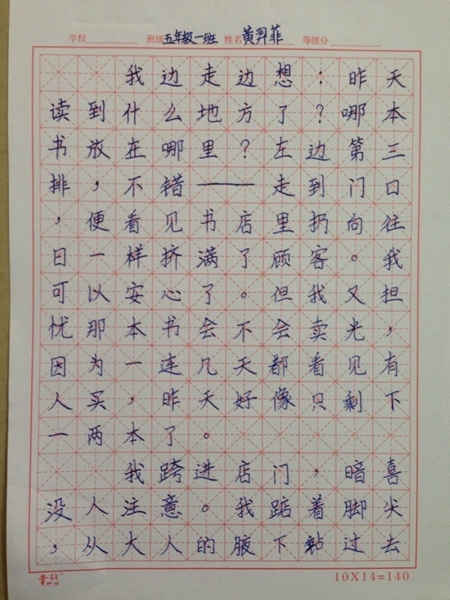 学校 班级 五年级一班 姓名 黄羿菲 等级分
我边走边想：昨天
读到什么地方了？哪本
书放在哪里？左边第三
排，不错——走到门口
，便看见书店里扔向往
日一样挤满了顾客。我
可以安心了。但我又担
忧那本书会不会卖光，
因为一连几天都看见有
人买，昨天好像只剩下
一两本了。
我跨进店门，暗喜
没人注意。我踮着脚尖
，从大人的腋下钻过去
10X14=140